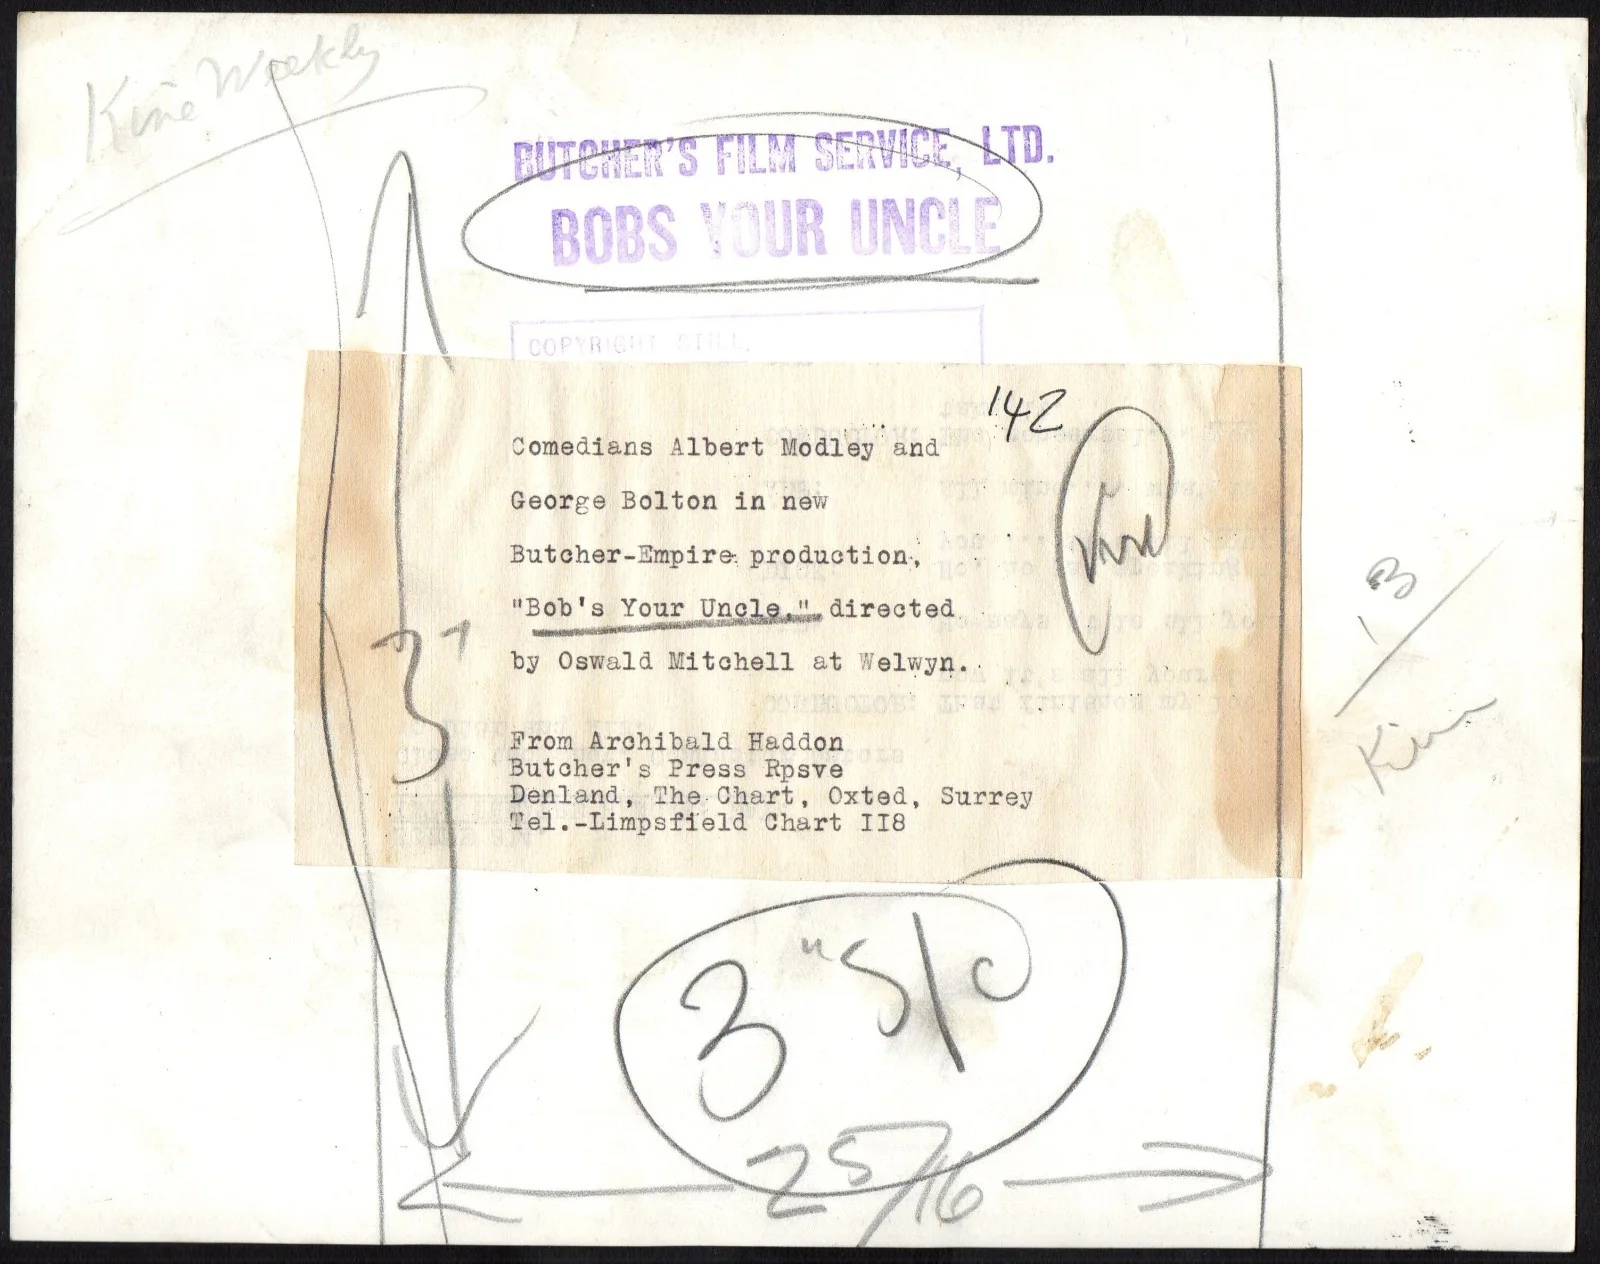 Kine Weekly
BUTCHER'S FILM SERVICE, LTD.
BOBS YOUR UNCLE
COPYRIGHT STILL
'42
Comedians Albert Modley and
George Bolton in new
Butcher-Empire production,
"Bob's Your Uncle," directed
by Oswald Mitchell at Welwyn.
From Archibald Haddon
Butcher's Press Rpsve
Denland, The Chart, Oxted, Surrey
Tel.-Limpsfield Chart II8
Kine
3"
3" S/C
2 5/16
Kine